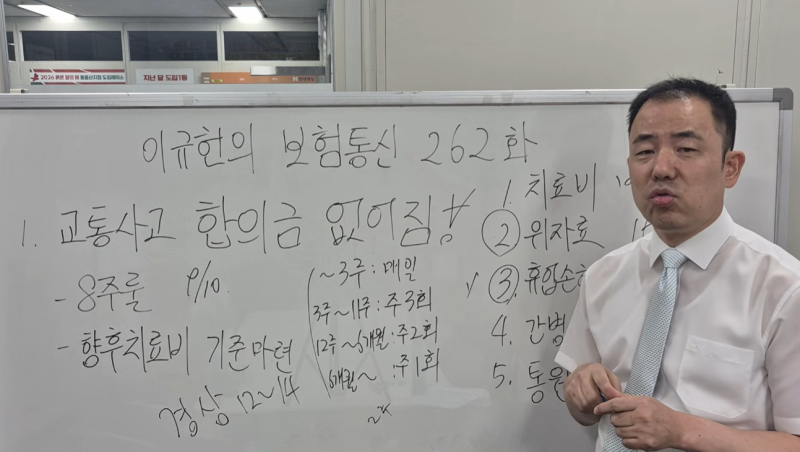 지난 달 도입1등
이규헌의 보험통신 262화
1. 교통사고 합의금 없어짐!
- 8주룰 9/10.
- 향후치료비 기준마련
경상 12~14
~3주 : 매일
3주~11주 : 주3회
12주~6개월 : 주2회
6개월~ : 주1회
1. 치료비
② 위자료
✓ ③ 휴업손
4. 간병
5. 통원